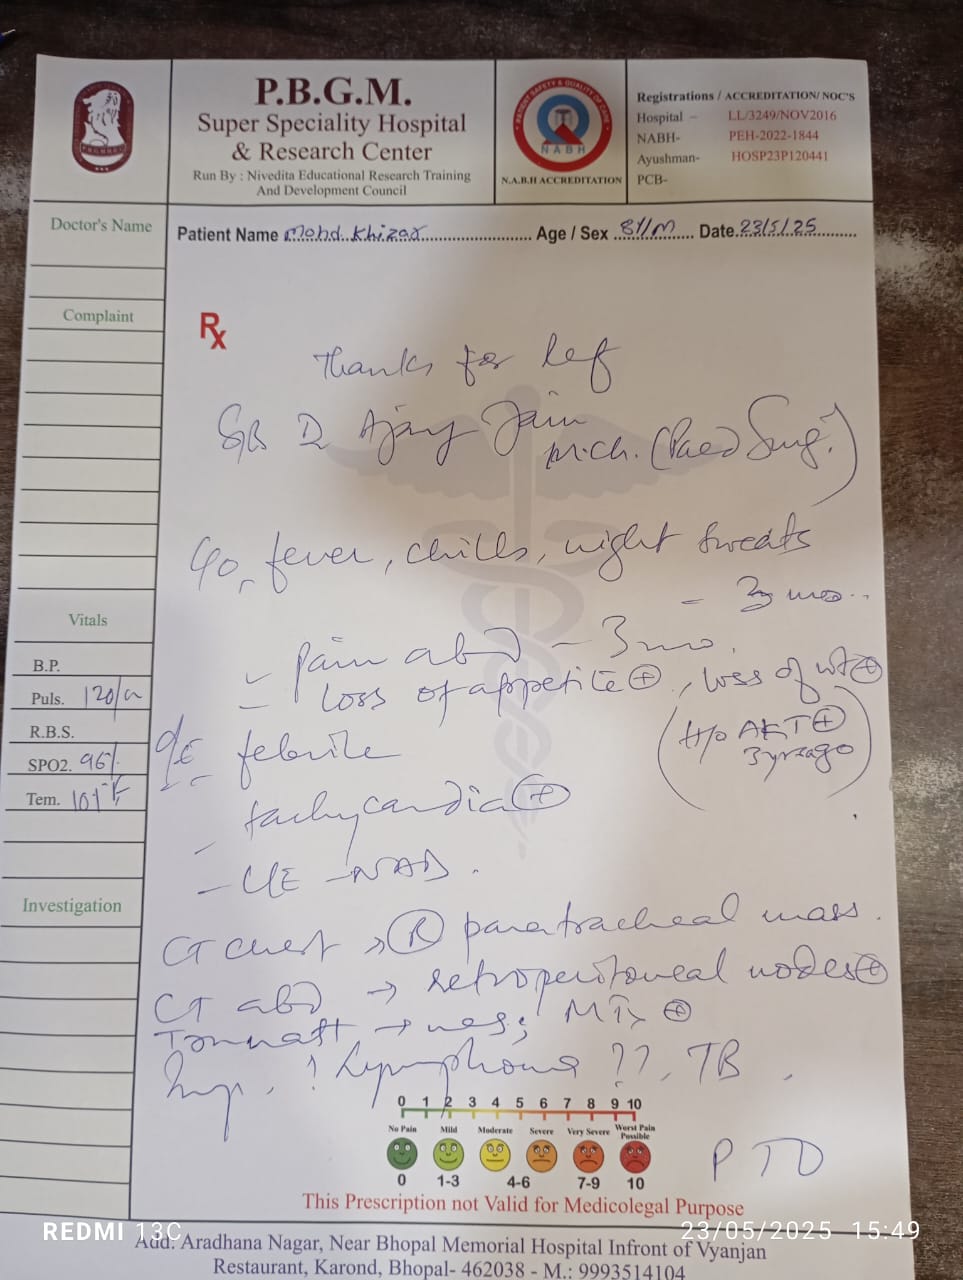 P.B.G.M.
Super Speciality Hospital
& Research Center
Run By : Nivedita Educational Research Training
And Development Council
N.A.B.H ACCREDITATION
Registrations / ACCREDITATION/ NOC'S
Hospital – LL/3249/NOV2016
NABH- PEH-2022-1844
Ayushman- HOSP23P120441
PCB-
Patient Name Mohd. Khizar Age / Sex 8Y/M Date 23/5/25
Doctor's Name
Complaint
Vitals
B.P.
Puls. 120/m
R.B.S.
SPO2. 96%
Tem. 101°F
Investigation
Rx
Thanks for Ref
S/B Dr Ajay Jain
M.ch. (Paed Surg.)
C/o, fever, chills, night sweats
- 3 mo..
- Pain abd - 3 mo.
- loss of appetite ⊕, loss of wt ⊕
(H/o AKT ⊕
3 yrs ago)
O/E febrile
- tachycardia ⊕
- NAD.
CT chest → Ⓡ paratracheal mass.
CT abd → retroperitoneal nodes ⊕
→ neg; ⊕
Imp. ? Lymphoma ??, TB
0 1 2 3 4 5 6 7 8 9 10
No Pain Mild Moderate Severe Very Severe Worst Pain Possible
0 1-3 4-6 7-9 10
PTO
This Prescription not Valid for Medicolegal Purpose
Add: Aradhana Nagar, Near Bhopal Memorial Hospital Infront of Vyanjan
Restaurant, Karond, Bhopal- 462038 - M.: 9993514104
REDMI 13C
23/05/2025 15:49